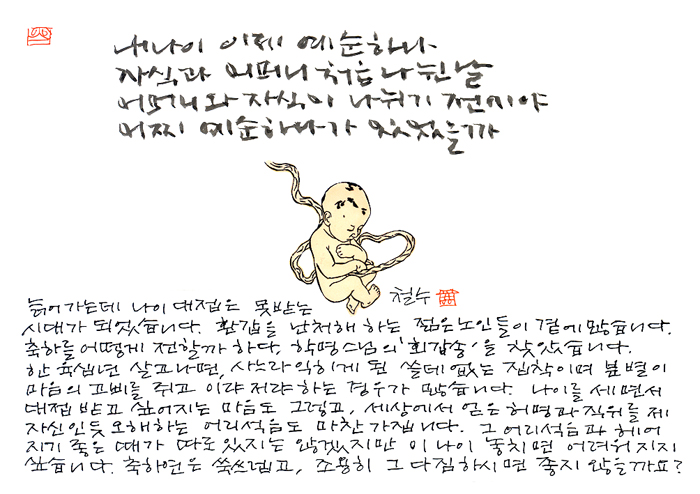 내나이 이제 예순하나
자식과 어머니 처음 나뉜날
어머니와 자식이 나뉘기 전이야
어찌 예순하나가 있었을까
철수
늙어가는데 나이대접은 못받는
시대가 되었습니다. 환갑을 난처해 하는 젊은노인들이 곁에 많습니다.
축하를 어떻게 전할까 하다, 학명스님의 '회갑송'을 찾았습니다.
한 육십년 살고나면, 사느라 익히게 된 쓸데 없는 집착이며 분별이
마음의 고삐를 쥐고 이랴저랴하는 경우가 많습니다. 나이를 세면서
대접 받고 싶어지는 마음도 그렇고, 세상에서 얻은 허명과 직위를 제
자신인듯 오해하는 어리석음도 마찬가집니다. 그 어리석음과 헤어
지기 좋은 때가 따로 있지는 않겠지만 이 나이 놓치면 어려워지지
싶습니다. 축하연은 쑥쓰럽고, 조용히 그 다짐하시면 좋지 않을까요?